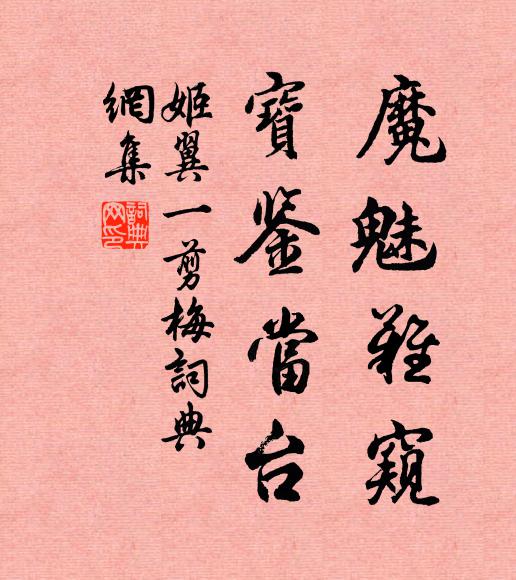 魔魅難窺
寶鉴當台
姬翼一剪梅詞典
網集
詞典網印